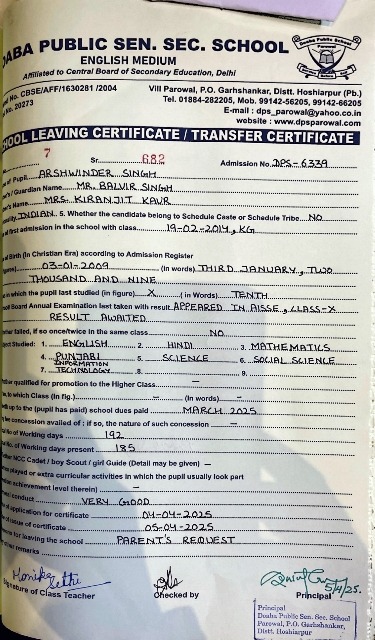 DABA PUBLIC SEN. SEC. SCHOOL
ENGLISH MEDIUM
Affiliated to Central Board of Secondary Education, Delhi
No. CBSE/AFF/1630281 /2004
No. 20273
Vill Parowal, P.O. Garhshankar, Distt. Hoshiarpur (Pb.)
Tel. 01884-282205, Mob. 99142-56205, 99142-66205
E-mail : dps_parowal@yahoo.co.in
website : www.dpsparowal.com
HOOL LEAVING CERTIFICATE / TRANSFER CERTIFICATE
7 Sr. 682 Admission No. DPS-6339
of Pupil ARSHWINDER SINGH
/ Guardian Name MR. BALVIR SINGH
Name MRS. KIRANJIT KAUR
INDIAN 5. Whether the candidate belong to Schedule Caste or Schedule Tribe NO
first admission in the school with class 19-02-2014, KG
Birth (In Christian Era) according to Admission Register
03-01-2009 (In words) THIRD JANUARY, TWO
THOUSAND AND NINE
in which the pupil last studied (in figure) X (in Words) TENTH
Board Annual Examination last taken with result APPEARED IN AISSE, CLASS-X
RESULT AWAITED
failed, if so once/twice in the same class NO
Studied: 1. ENGLISH 2. HINDI 3. MATHEMATICS
4. PUNJABI 5. SCIENCE 6. SOCIAL SCIENCE
7. INFORMATION TECHNOLOGY 8. 9.
qualified for promotion to the Higher Class –
to which Class (in fig.) – (In words) –
up to the (pupil has paid) school dues paid MARCH 2025
concession availed of : if so, the nature of such concession –
No of Working days 192
of Working days present 185
NCC Cadet / boy Scout / girl Guide (Detail may be given) –
played or extra curricular activities in which the pupil usually look part
achievement level therein) –
conduct VERY GOOD
of application for certificate 04-04-2025
of issue of certificate 05-04-2025
for leaving the school PARENT'S REQUEST
remarks
Monika Sethi
Signature of Class Teacher Checked by Principal
5/4/25.
Principal
Doaba Public Sen. Sec. School
Parowal, P.O. Garhshankar,
Distt. Hoshiarpur